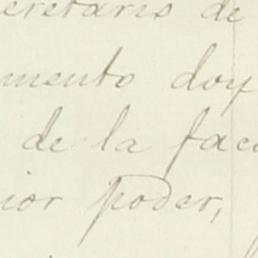 cretario de
mento doy
de la fac
ior poder,